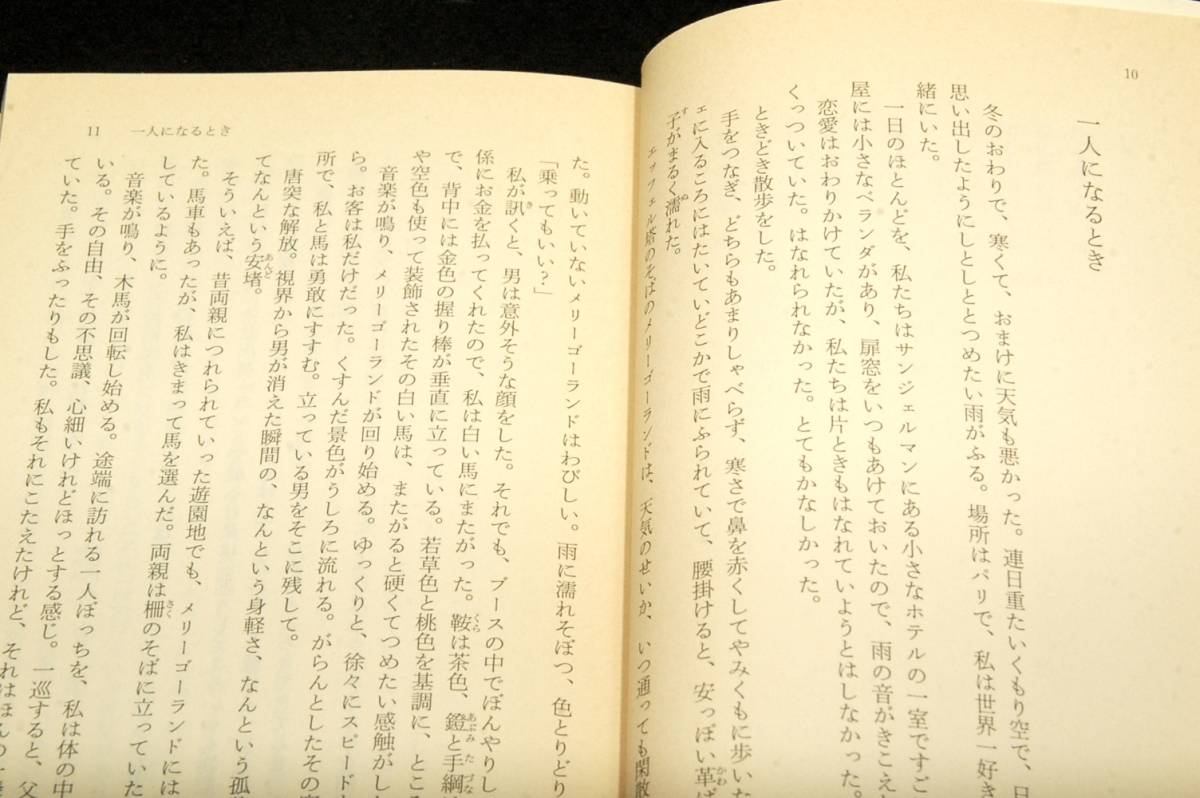 10
一人になるとき
冬のおわりで、寒くて、おまけに天気も悪かった。連日重たいくもり空で、日
思い出したようにしとしととつめたい雨がふる。場所はパリで、私は世界一好き
緒にいた。
一日のほとんどを、私たちはサンジェルマンにある小さなホテルの一室ですご
屋には小さなベランダがあり、扉窓をいつもあけておいたので、雨の音がきこえ
恋愛はおわりかけていたが、私たちは片ときもはなれていようとはしなかった。
くっついていた。はなれられなかった。とてもかなしかった。
ときどき散歩をした。
手をつなぎ、どちらもあまりしゃべらず、寒さで鼻を赤くしてやみくもに歩いた
ェに入るころにはたいていどこかで雨にふられていて、腰掛けると、安っぽい革ば
子がまるく濡れた。
エッフェル塔のそばのメリーゴーランドは、天気のせいか、いつ通っても閑散
11 一人になるとき
た。動いていないメリーゴーランドはわびしい。雨に濡れそぼつ、色とりどり
「乗ってもいい?」
私が訊くと、男は意外そうな顔をした。それでも、ブースの中でぼんやりし
係にお金を払ってくれたので、私は白い馬にまたがった。鞍は茶色、鐙と手綱は
で、背中には金色の握り棒が垂直に立っている。若草色と桃色を基調に、ところ
や空色も使って装飾されたその白い馬は、またがると硬くてつめたい感触がし
音楽が鳴り、メリーゴーランドが回り始める。ゆっくりと、徐々にスピード
ら。お客は私だけだった。くすんだ景色がうしろに流れる。がらんとしたその
所で、私と馬は勇敢にすすむ。立っている男をそこに残して。
唐突な解放。視界から男が消えた瞬間の、なんという身軽さ、なんという孤
てなんという安堵。
そういえば、昔両親につれられていった遊園地でも、メリーゴーランドには
た。馬車もあったが、私はきまって馬を選んだ。両親は柵のそばに立っていた
しているように。
音楽が鳴り、木馬が回転し始める。途端に訪れる一人ぼっちを、私は体の中
いる。その自由、その不思議、心細いけれどほっとする感じ。一巡すると、父
ていた。手をふったりもした。私もそれにこたえたけれど、それはほんの